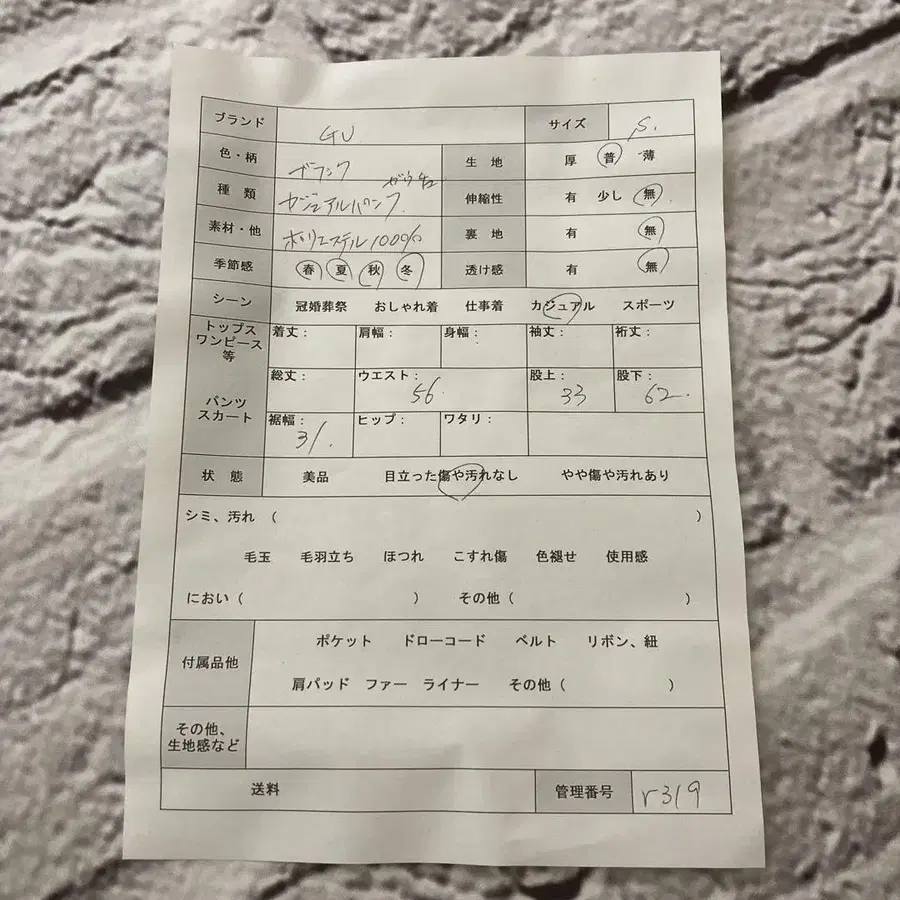 ブランド GU サイズ S.
色・柄 ブラック 生地 厚 普 薄
ガウチョ
種類 カジュアルパンツ 伸縮性 有 少し 無
素材・他 ポリエステル100% 裏地 有 無
季節感 春 夏 秋 冬 透け感 有 無
シーン 冠婚葬祭 おしゃれ着 仕事着 カジュアル スポーツ
トップス
ワンピース
等
着丈: 肩幅: 身幅: 袖丈: 裄丈:
パンツ
スカート
総丈: ウエスト: 56 股上: 33 股下: 62.
裾幅: 31. ヒップ: ワタリ:
状態 美品 目立った傷や汚れなし やや傷や汚れあり
シミ、汚れ ( )
毛玉 毛羽立ち ほつれ こすれ傷 色褪せ 使用感
におい ( ) その他 ( )
付属品他
ポケット ドローコード ベルト リボン、紐
肩パッド ファー ライナー その他 ( )
その他、
生地感など
送料 管理番号 r319